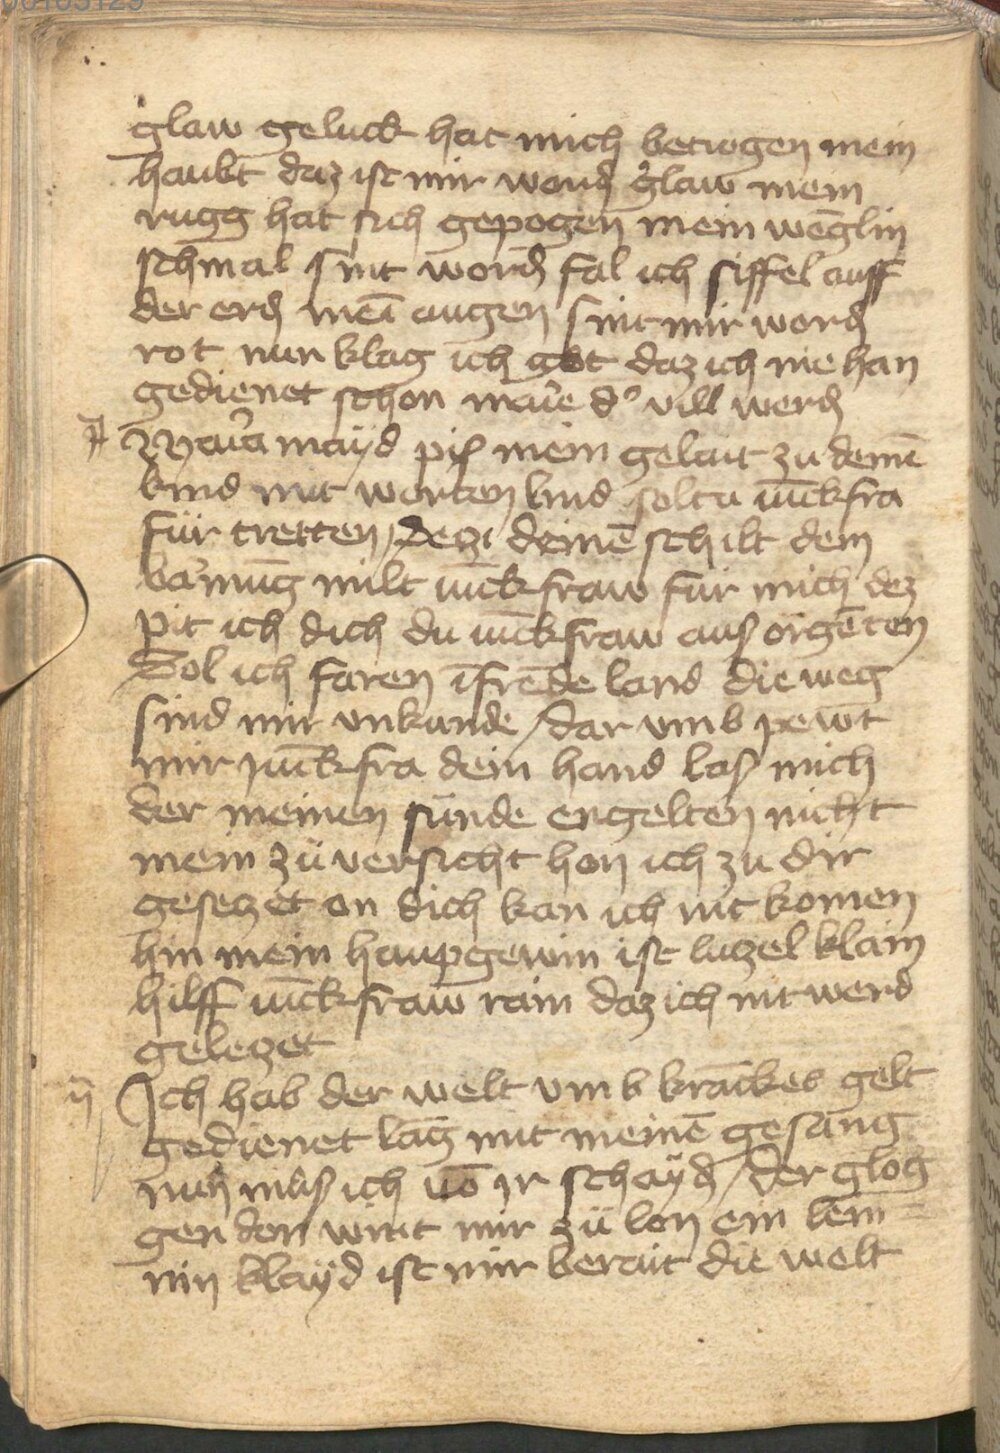 00105129
glaw geluck hat mich betrogen mein
haubt daz ist mir word glaw mein
rugg hat sich gepogen mein wēglin
schmal sint word fal ich siffel auff
der erd meī augen sint mir word
rot nun klag ich got daz ich nie han
gedienet schon der vill werd
mayd piſ mein gelait zu deinē
kind mit worten lind soltu iūckfra
für tretten deinē schilt dem
milt iūckfraw für mich dez
pit ich dich du iūckfraw auſ orgēten
Sol ich faren ī frēde land die weg
sind mir vnkunde / dar vmb pewt
mir jūckfra dein hand laſ mich
der meinen sünde engelten nicht
mein zü versicht hon ich zu dir
gesetzet on dich kan ich nit komen
hin mein haupgewin ist lutzel klain
hilff iūckfraw rain daz ich nit werd
geletzet
Ich hab der welt vmb krāckes gelt
gedienet lāg mit meinē gesang
nun můſ ich vō jr schayd / der glog
gen don wirt mir zü lon ein lem
nin klayd ist mir berait die welt